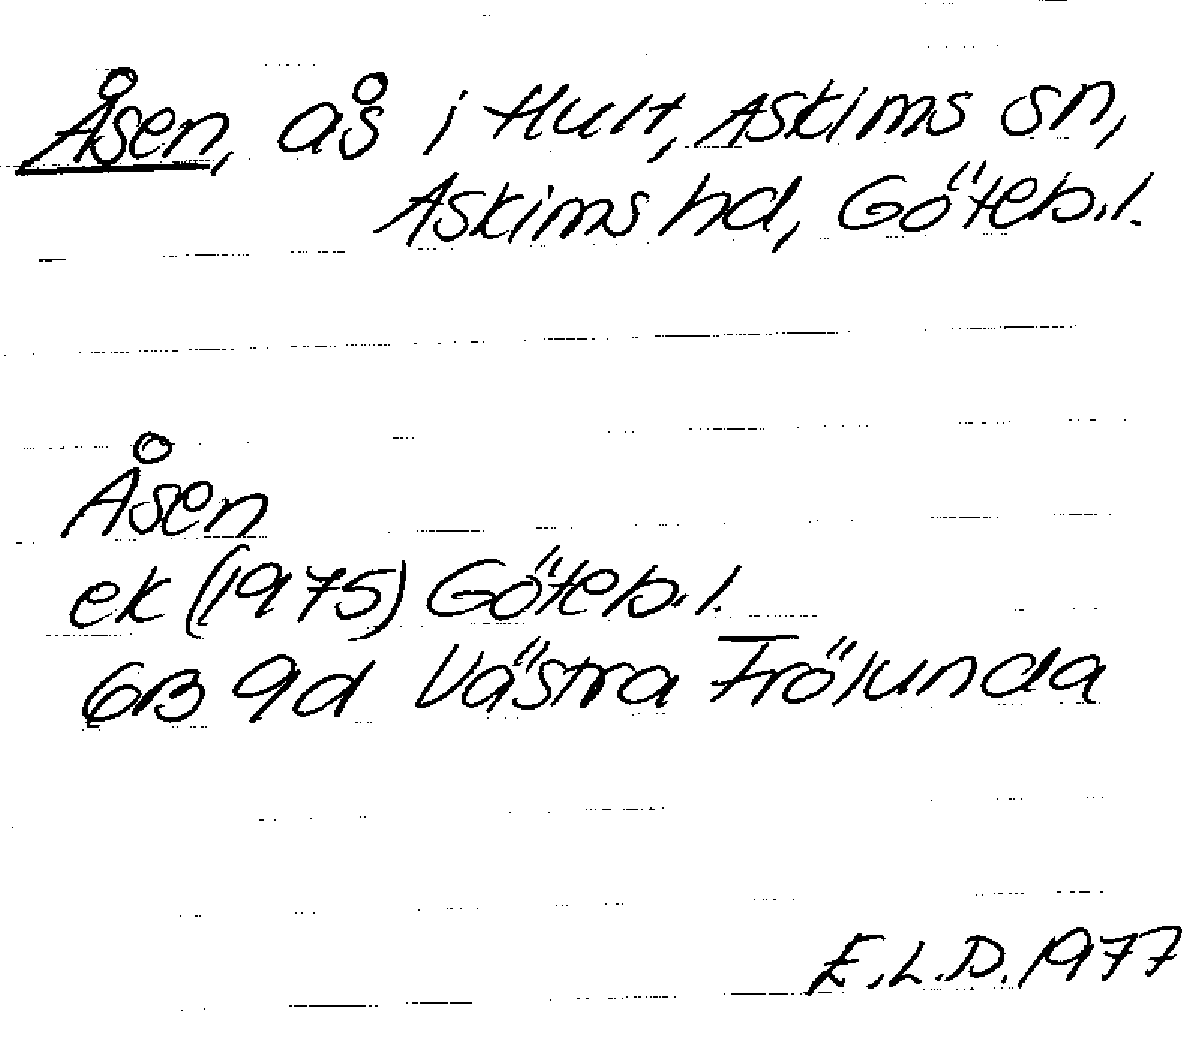 Åsen, gå i Hult, Askims sn,
Askims hd, Göteb.l.
Åsen
ek (1975) Göteb.l.
6B 9d Västra Frölunda
E.L.D. 1977